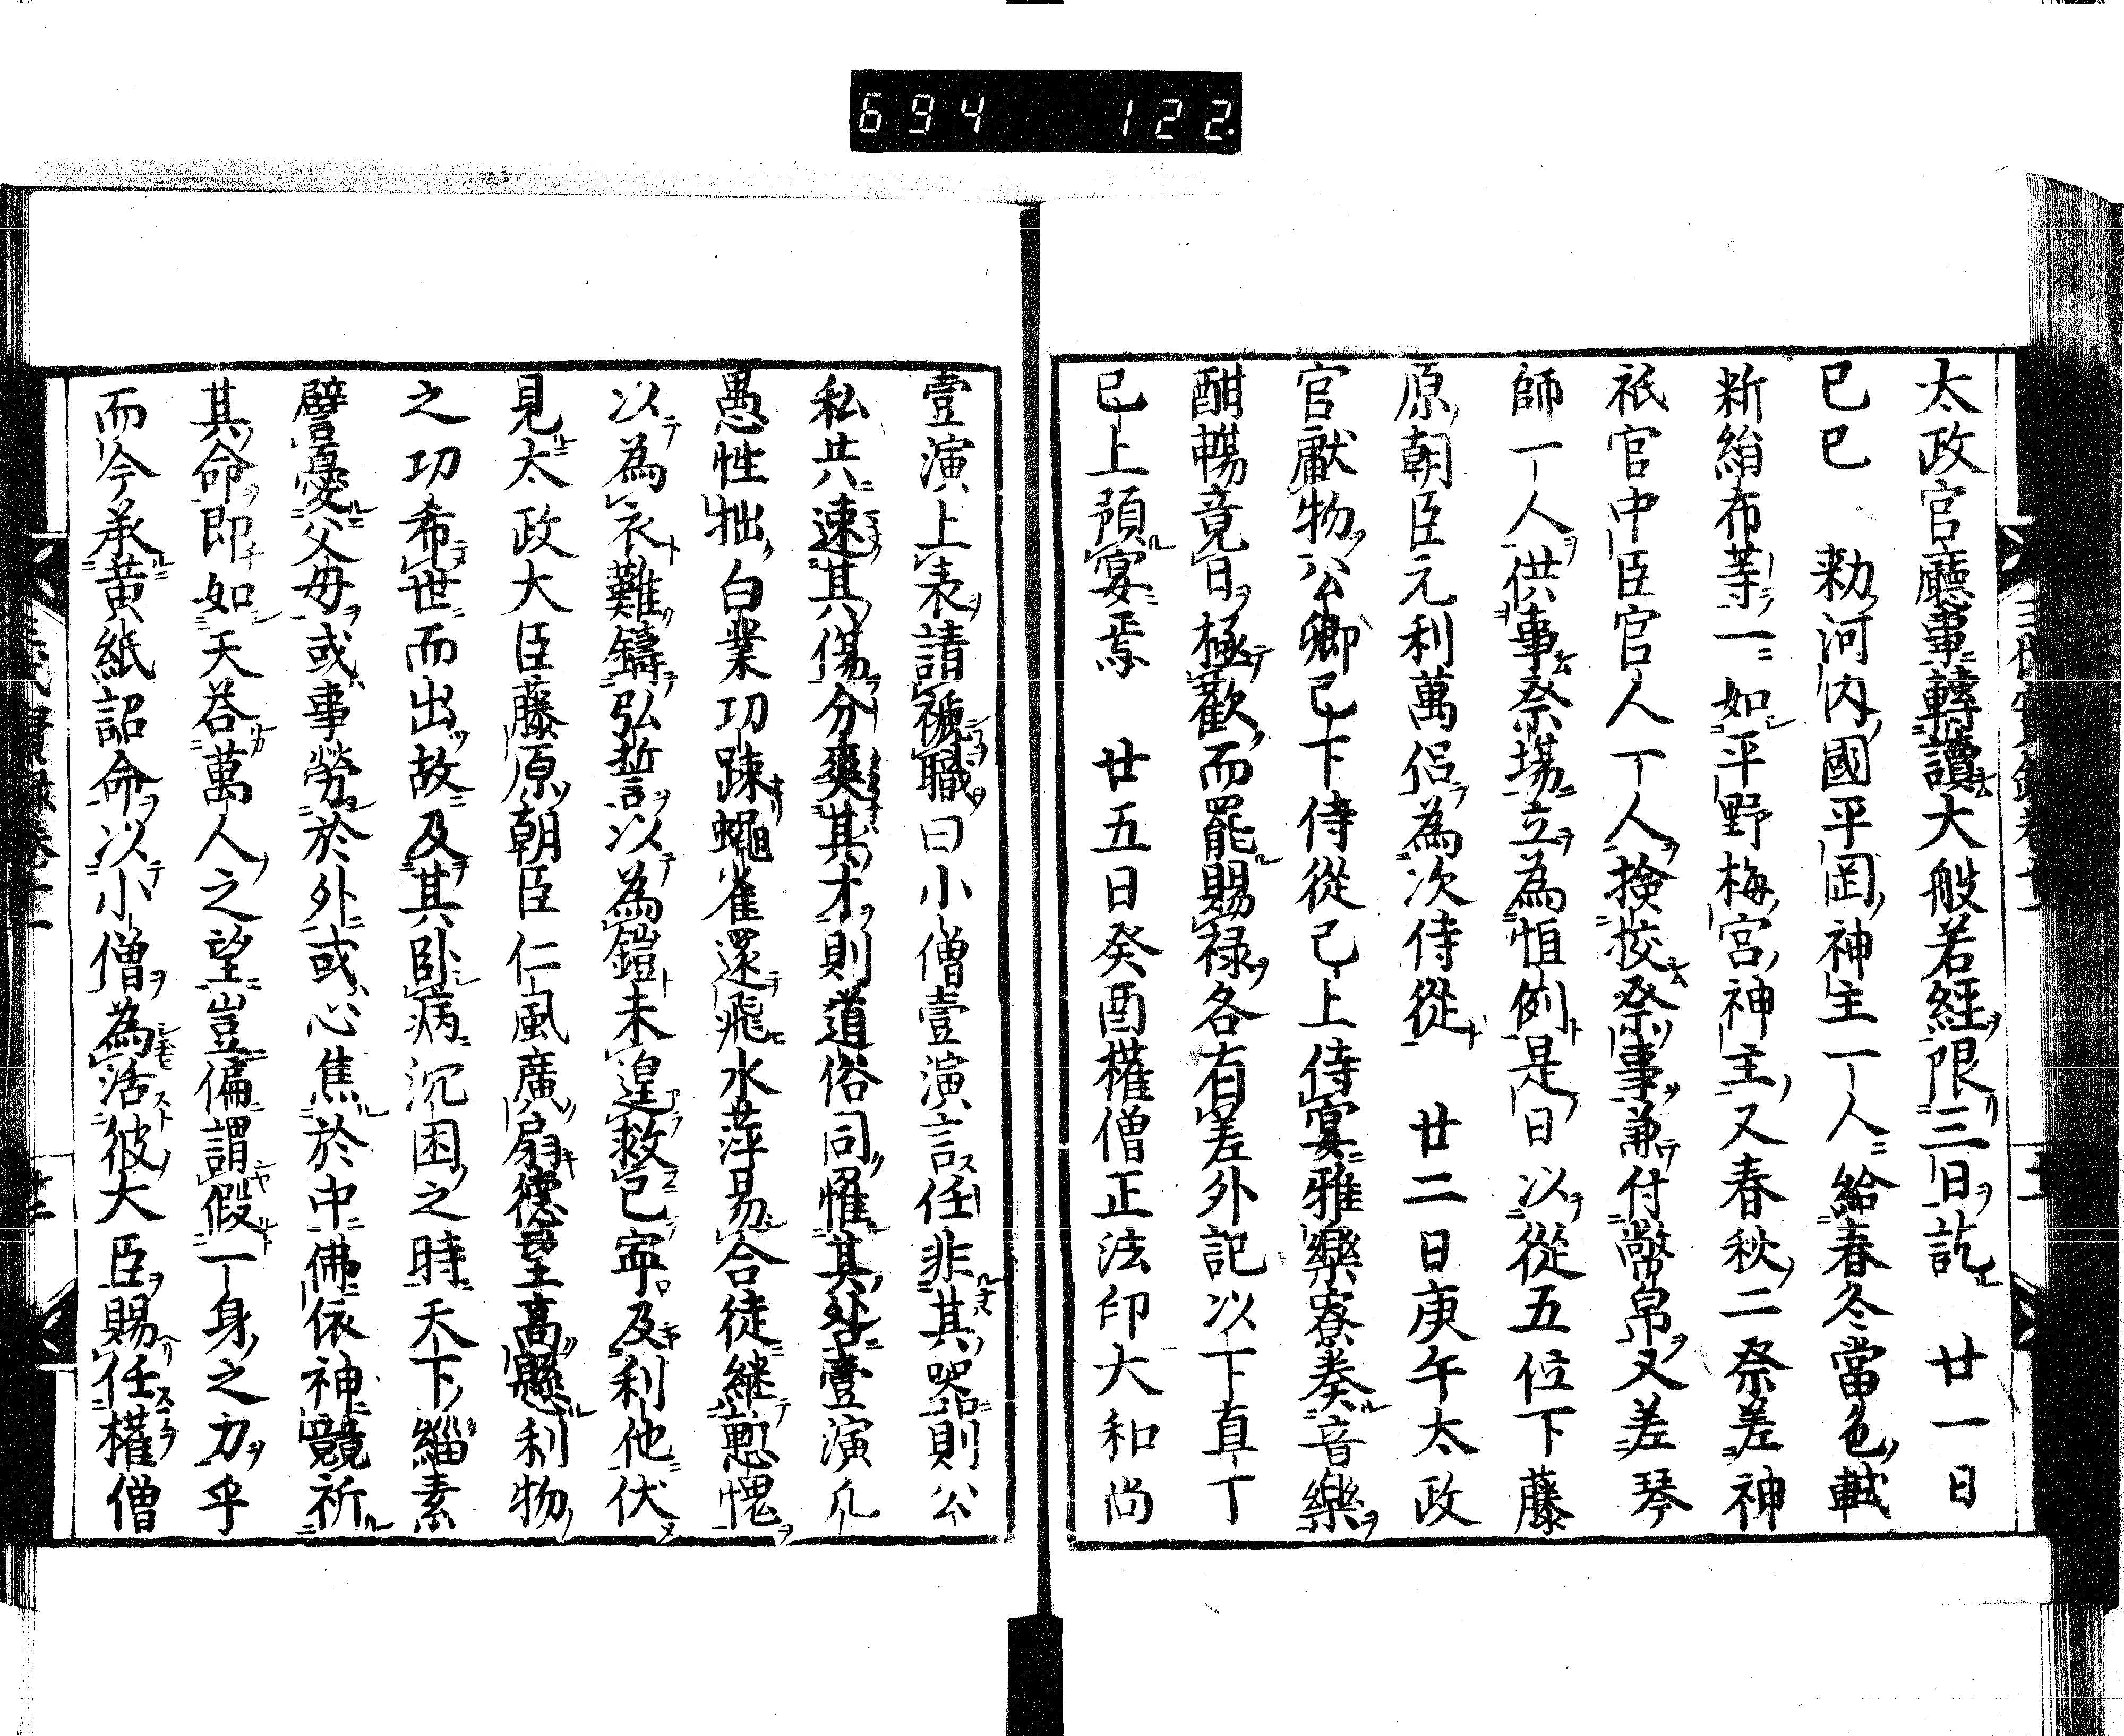 694 122
太政官廳事轉讀大般若經限三日訖 廿一日
己巳 勑河内國平岡神主一人給春冬當色軾
新絹布等一如平野梅宮神主又春秋二祭差神
祇官中臣官人一人撿挍祭事兼付幣帛又差琴
師一人供事祭場立為恒例是日以從五位下藤
原朝臣元利萬侶為次侍從 廿二日庚午太政
官獻物公卿已下侍從已上侍宴雅樂寮奏音樂
酣暢竟日極歡而罷賜禄各有差外記以下直丁
已上預宴焉 廿五日癸酉權僧正法印大和尚
壹演上表請褫職曰小僧壹演言任非其器則公
私共速其傷分爽其才則道俗同惟其咎壹演爪
愚性拙白業功踈蠅雀還飛水萍易合徒継慙愧
以為衣難鑄弘誓以為鎧未遑救已寧及利他伏
見太政大臣藤原朝臣仁風廣扇德望高懸利物
之功希世而出故及其臥病沉困之時天下緇素
譬憂父母或事勞於外或心焦於中佛依神競祈
其命即如天荅萬人之望豈偏謂假一身之力乎
而今承黄紙詔命以小僧為活彼大臣賜任權僧